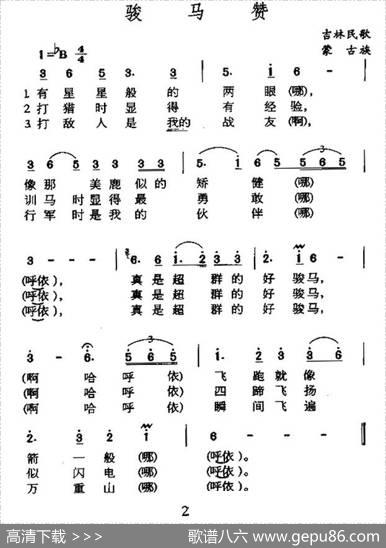 骏马赞
吉林民歌
蒙古族
1=♭B 4/4
3 6 5 3 3 | 5. i 6 - |
1.有星星般的 两眼(哪),
2.打猎时显得 有经验,
3.打敌人是我的 战友(啊),
3 6 5 6 3 3 3 | 5. i 6 5 6 5 |
像那美鹿似的 矫健(哪)
训马时显得最 勇敢(哪)
行军时是我的 伙伴(哪)
3 - - - | 6. 6 i. 2 3 3 | 2. i 6 - |
(呼依), 真是超群的好骏马,
(呼依), 真是超群的好骏马,
(呼依), 真是超群的好骏马,
3 - 6. 5 6 5 | i. 2 3 3 |
(啊哈呼依) 飞跑就像
(啊哈呼依) 四蹄飞扬
(啊哈呼依) 瞬间飞遍
2. 3 2 i | 6 - - - |
箭一般(哪) (呼依)。
似闪电(哪) (呼依)。
万重山(哪) (呼依)。
2
高清下载 >>> 歌谱八六 www.gepu86.com